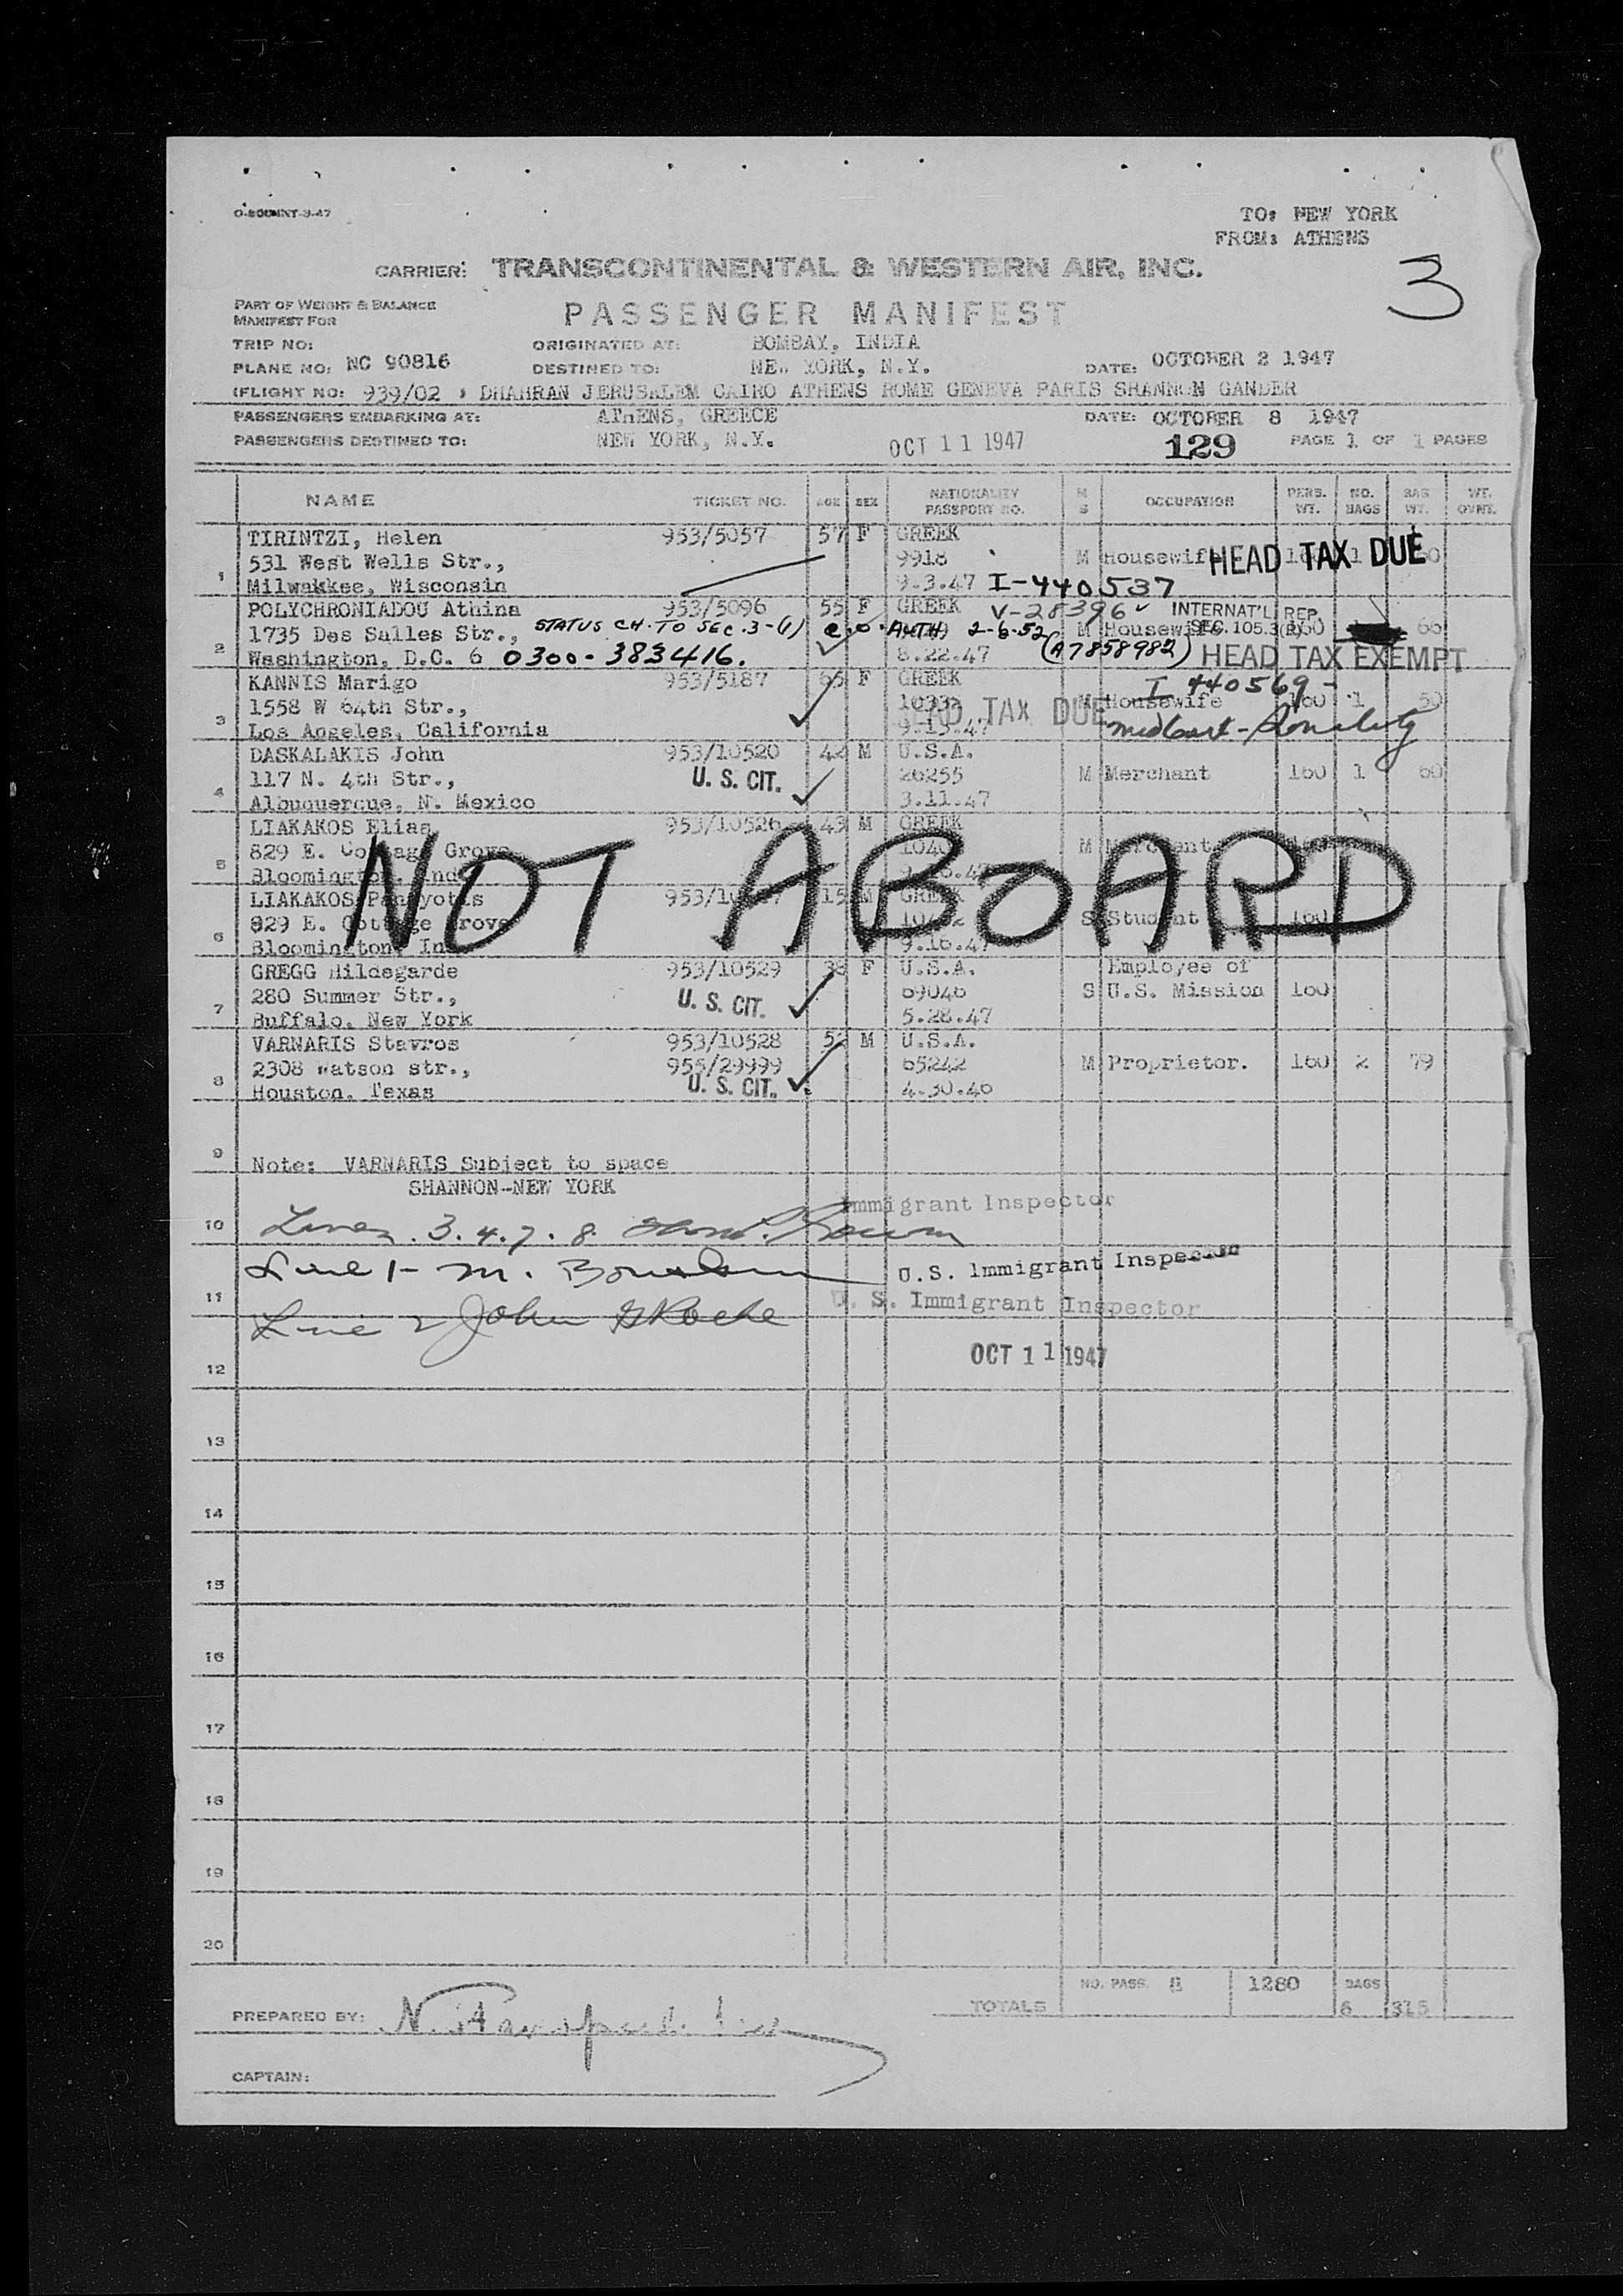 TO: NEW YORK
FROM: ATHENS
3
CARRIER: TRANSCONTINENTAL & WESTERN AIR, INC.
PART OF WEIGHT & BALANCE
MANIFEST FOR
PASSENGER MANIFEST
TRIP NO: ORIGINATED AT: BOMBAY, INDIA
PLANE NO: NC 90816 DESTINED TO: NEW YORK, N.Y. DATE: OCTOBER 2 1947
(FLIGHT NO: 939/02 , DHAHRAN JERUSALEM CAIRO ATHENS ROME GENEVA PARIS SHANNON GANDER
PASSENGERS EMBARKING AT: ATHENS, GREECE DATE: OCTOBER 8 1947
PASSENGERS DESTINED TO: NEW YORK, N.Y. OCT 11 1947 129 PAGE 1 OF 1 PAGES
NAME TICKET NO. AGE SEX NATIONALITY PASSPORT NO. M S OCCUPATION PERS. WT. NO. BAGS BAG WT. WT. OVNT.
TIRINTZI, Helen 953/5057 57 F GREEK
531 West Wells Str., 9918 M Housewife HEAD TAX DUE
1 Milwakkee, Wisconsin 9.3.47 I-440537
POLYCHRONIADOU Athina 953/5096 55 F GREEK V-28396 INTERNAT'L REP.
1735 Des Salles Str., STATUS CH. TO SEC. 3-(1) C.O. AUTH 2-6-52 M Housewife SEC. 105.3 60
2 Washington, D.C. 6 0300-383416. 8.22.47 (A7858982) HEAD TAX EXEMPT
KANNIS Marigo 953/5187 65 F GREEK I 440569-
1558 W 64th Str., HEAD TAX DUE M Housewife 160 1 50
3 Los Angeles, California 9.13.47
DASKALAKIS John 953/10520 42 M U.S.A.
117 N. 4th Str., U. S. CIT. 26255 M Merchant 160 1 60
4 Albuquerque, N. Mexico 3.11.47
LIAKAKOS Elias 953/10526 43 M GREEK
829 E. Cottage Grove M Merchant
5 Bloomington, Ind
NOT ABOARD
LIAKAKOS Panayotis 15 M GREEK
829 E. Cottage Grove S Student 160
6 Bloomington, In 9.16.47
GREGG Hildegarde 953/10529 38 F U.S.A. Employee of
280 Summer Str., U. S. CIT. 69046 S U.S. Mission 160
7 Buffalo, New York 5.28.47
VARNARIS Stavros 953/10528 52 M U.S.A.
2308 Watson str., 955/29999 65242 M Proprietor. 160 2 79
8 Houston, Texas U. S. CIT. 4.30.46
9 Note: VARNARIS Subject to space
SHANNON-NEW YORK
Immigrant Inspector
10 Lines 3.4.7.8.
Line 1- M. U.S. Immigrant Inspector
11 U. S. Immigrant Inspector
Line 2 John Roche
OCT 11 1947
12
13
14
15
16
17
18
19
20
TOTALS NO. PASS. 8 1280 BAGS 6 315
PREPARED BY:
CAPTAIN: